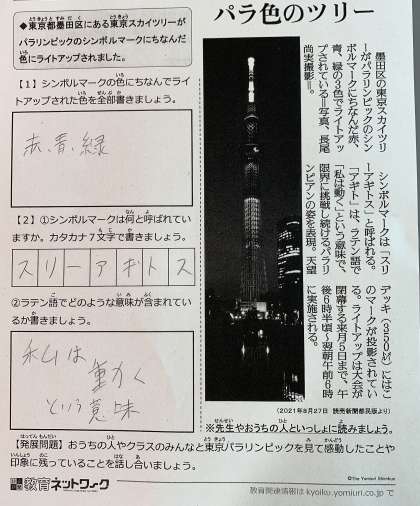 ◆東京都墨田区にある東京スカイツリーが
パラリンピックのシンボルマークにちなんだ
色にライトアップされました。
【1】シンボルマークの色にちなんでライ
トアップされた色を全部書きましょう。
赤、青、緑
【2】①シンボルマークは何と呼ばれてい
ますか。カタカナ7文字で書きましょう。
スリーアギトス
②ラテン語でどのような意味が含まれてい
るか書きましょう。
私は
動く
という意味
パラ色のツリー
墨田区の東京スカイツリ
ーがパラリンピックのシン
ボルマークにちなんだ赤、
青、緑の3色でライトアッ
プされている=写真、長尾
尚実撮影=。
シンボルマークは「スリ
ーアギトス」と呼ばれる。
「アギト」は、ラテン語で
「私は動く」という意味で、
限界に挑戦し続けるパラリ
ンピアンの姿を表現。天望
デッキ(350㍍)にはこ
のマークが投影されてい
る。ライトアップは大会が
閉幕する来月5日まで、午
後6時半頃~翌朝午前6時
に実施される。
(2021年8月27日 読売新聞都民版より)
※先生やおうちの人といっしょに読みましょう。
【発展問題】おうちの人やクラスのみんなと東京パラリンピックを見て感動したことや
印象に残っていることを話し合いましょう。
©The Yomiuri Shimbun
教育ネットワーク
教育関連情報は kyoiku.yomiuri.co.jp で